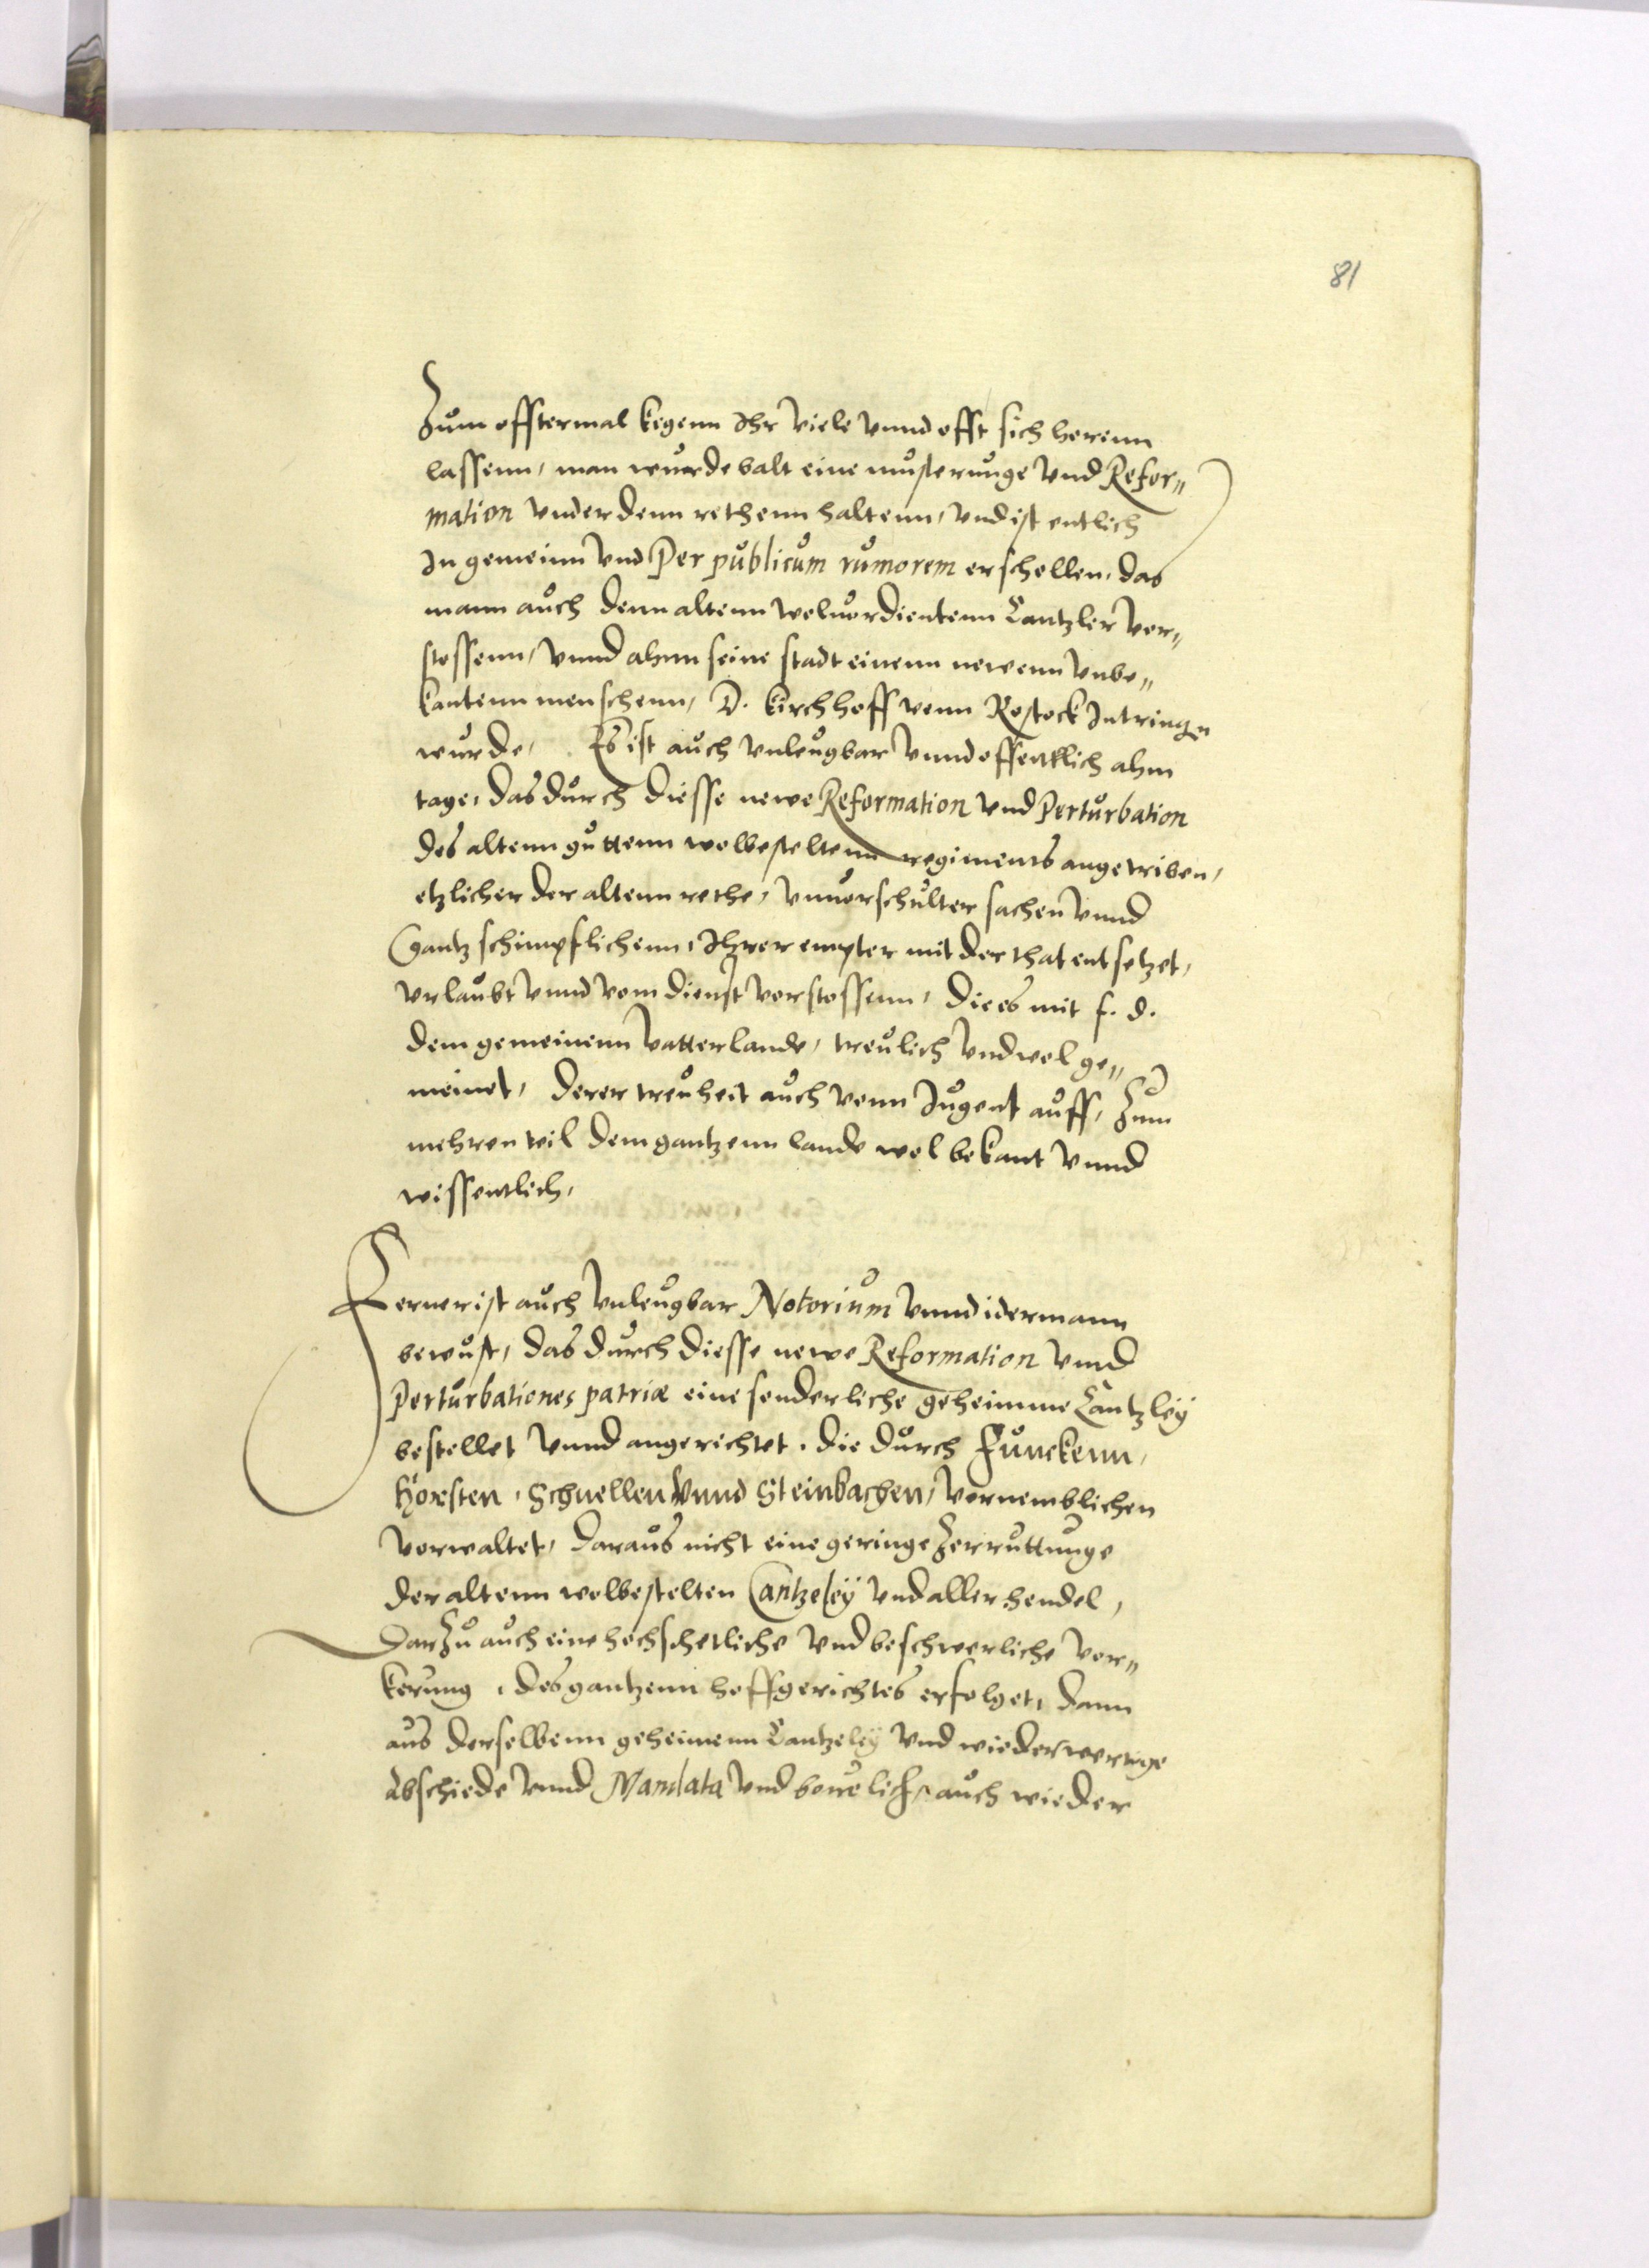 81
Zum offtermal kegenn Ihr viele vnnd offt sich herenn
lassenn, man wurde balt eine musterunge vnd Refor„
mation vnder denn rethenn haltenn, vnd ist entlich
In gemeinn vnd Per publicum rumorem erschellen, das
mann auch denn altenn woluordientenn Cantzler ver„
stossenn, vnnd ahnn seine stadt einenn newenn vnbe„
kantenn menschenn, D. Kirchhoff vonn Rostock Intringen
wurde, Es ist auch vnleugbar vnnd offentlich ahm
tage, das durch diesse newe Reformation vnd Perturbation
des altenn guttenn wolbesteltenn regiments angetriben,
etzlicher der altenn rethe, vnuorschulter sachen vnnd
Gantz schimpflichenn, Ihrer empter mit der that entsetzet,
vrlaubt vnnd vom dienst vorstossenn, die es mit f. d.
dem gemeinenn vatterlande, treulich vnd wol ge„
meinet, derer treuheit auch vonn Jugent auff, Zum
mehren teil dem gantzenn lande wol bekant vnnd
wissentlich,
Ferner ist auch vnleugbar Notorium vnnd idermann
bewust, das durch diesse newe Reformation vnnd
Perturbationes patriæ eine sonderliche geheimme Cantzley
bestellet vnnd angerichtet, die durch Funckenn,
Horsten, Schnellen vnnd Steinbachen, vornemblichen
vorwaltet, daraus nicht eine geringe Zerruttunge
der altenn wolbestelten Cantzeley vnd aller hendel,
Darzu auch eine hochschetliche vnd beschwerliche vor„
kerung, des gantzenn hoffgerichtes erfolget, dann
aus derselbenn geheimenn Cantzeley vnd wiederwertige
Abschiede vnnd Mandata vnd beuelich, auch wieder